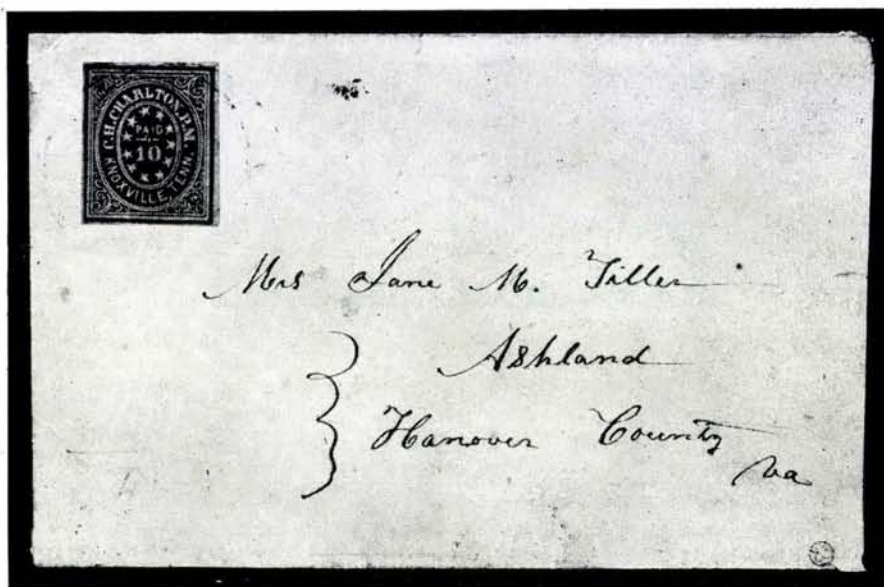 C.H.CHARLTON.P.M.
PAID
10
KNOXVILLE, TENN.
Mrs Jane M. Tiller
Ashland
Hanover County
Va